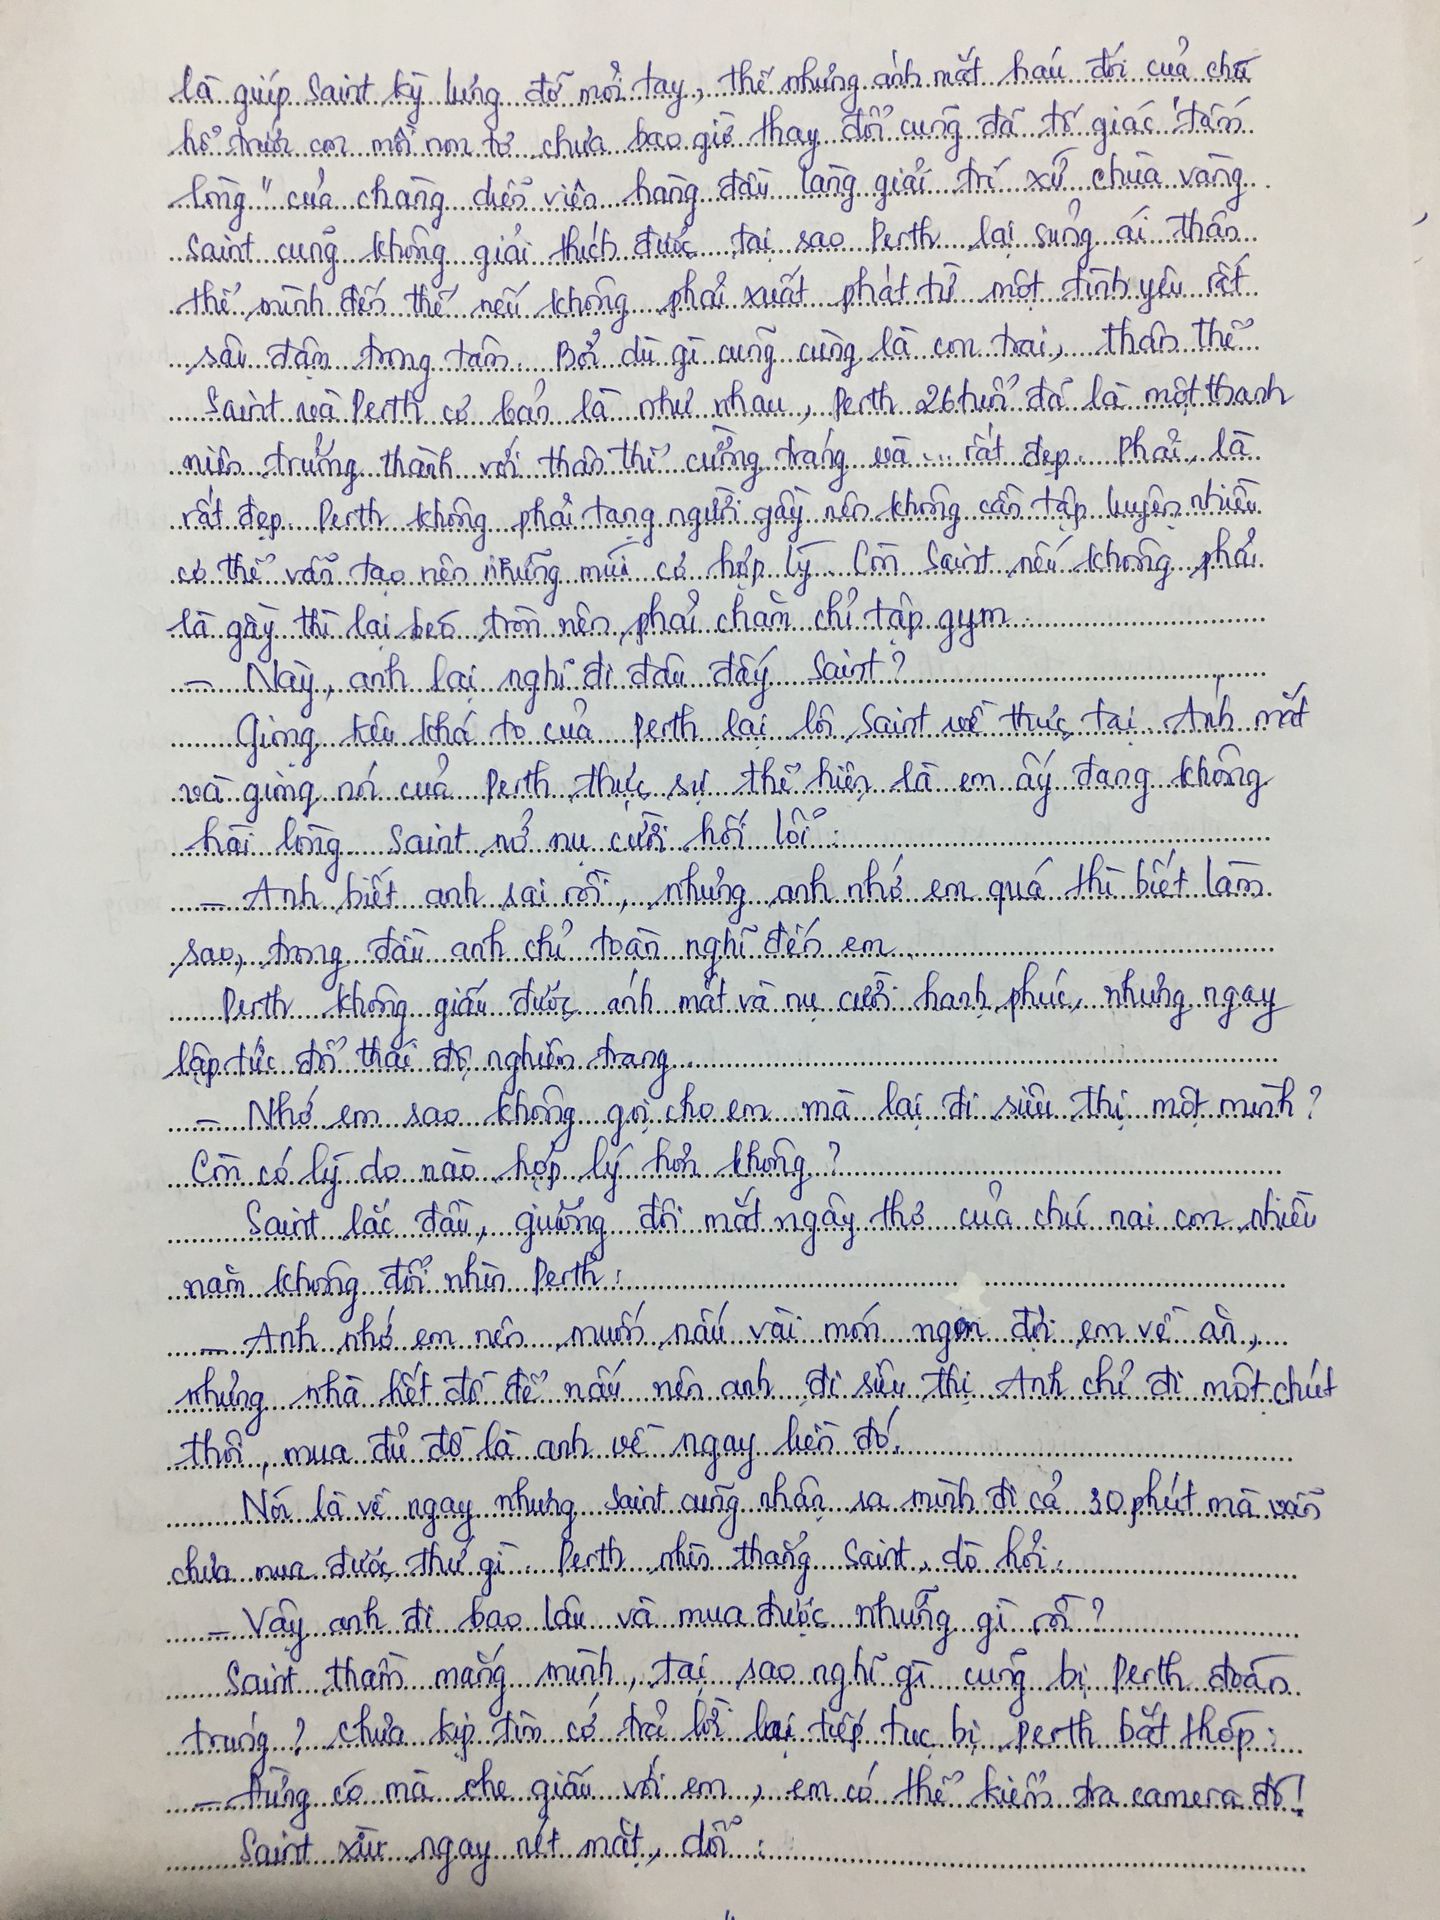 là giúp Saint kỳ lưng đỡ mỏi tay, thế nhưng ánh mắt háu đói của chú
hổ trước con mồi non tơ chưa bao giờ thay đổi cũng đã tố giác "tấm
lòng" của chàng diễn viên hàng đầu làng giải trí xứ chùa vàng.
Saint cũng không giải thích được tại sao Perth lại sủng ái thân
thể mình đến thế nếu không phải xuất phát từ một tình yêu rất
sâu đậm trong tâm. Bởi dù gì cũng cùng là con trai, thân thể
Saint và Perth cơ bản là như nhau, Perth 26 tuổi đã là một thanh
niên trưởng thành với thân thể cường tráng và... rất đẹp. Phải, là
rất đẹp. Perth không phải tạng người gầy nên không cần tập luyện nhiều
có thể vẫn tạo nên những múi cơ hợp lý. Còn Saint nếu không phải
là gầy thì lại béo tròn nên phải chăm chỉ tập gym
- Này, anh lại nghĩ đi đâu đấy Saint?
Giọng kêu khá to của Perth lại lôi Saint về thực tại. Ánh mắt
và giọng nói của Perth thực sự thể hiện là em ấy đang không
hài lòng. Saint nở nụ cười hối lỗi:
- Anh biết anh sai rồi, nhưng anh nhớ em quá thì biết làm
sao, trong đầu anh chỉ toàn nghĩ đến em.
Perth không giấu được ánh mắt và nụ cười hạnh phúc, nhưng ngay
lập tức đổi thái độ nghiêm trang.
- Nhớ em sao không gọi cho em mà lại đi siêu thị một mình?
Còn có lý do nào hợp lý hơn không?
Saint lắc đầu, giương đôi mắt ngây thơ của chú nai con nhiều
năm không đổi nhìn Perth:
- Anh nhớ em nên muốn nấu vài món ngon đợi em về ăn,
nhưng nhà hết đồ để nấu nên anh đi siêu thị. Anh chỉ đi một chút
thôi, mua đủ đồ là anh về ngay liền đó.
Nói là về ngay nhưng Saint cũng nhận ra mình đi cả 30 phút mà vẫn
chưa mua được thứ gì. Perth nhìn thẳng Saint, dò hỏi:
- Vậy anh đi bao lâu và mua được những gì rồi?
Saint thầm mắng mình, tại sao nghĩ gì cũng bị Perth đoán
trúng? Chưa kịp tìm cớ trả lời lại tiếp tục bị Perth bắt thóp:
- Đừng có mà che giấu với em, em có thể kiểm tra camera đó!
Saint xìu ngay nét mặt, dỗi: